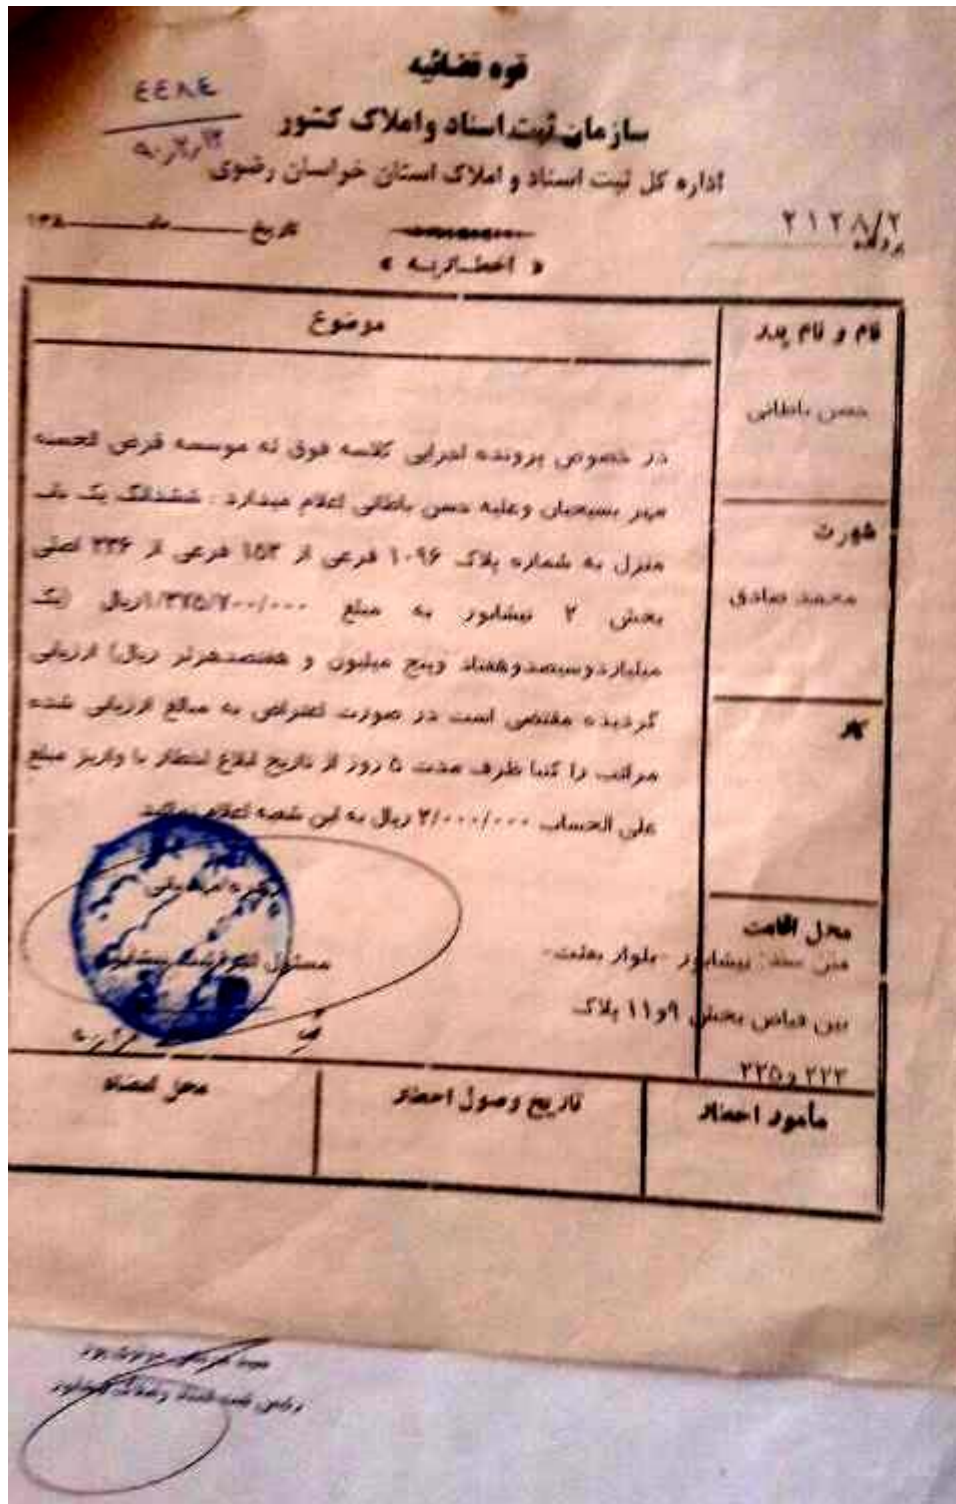 قوه قضائیه
سازمان ثبت اسناد و املاک کشور
اداره کل ثبت اسناد و املاک استان خراسان رضوی
٤٤٨٤
۹۰/۲/۱۳
۲۱۲۸/۲
پرونده
تاریخ ماه ۱۳۸
« اخطاریه »
نام و نام پدر
حسن باطانی
شهرت
محمد صادق
کار
محل اقامت
متن سند: نیشابور -بلوار بعثت-
بین فیاض بخش ۹و۱۱ پلاک
۲۲۳ و ۲۲۵
موضوع
در خصوص پرونده اجرایی کلاسه فوق له موسسه قرض الحسنه
مهر بسیجیان وعلیه حسن باطانی اعلام میدارد : ششدانگ یک باب
منزل به شماره پلاک ۱۰۹۶ فرعی از ۱۵۳ فرعی از ۲۳۶ اصلی
بخش ۲ نیشابور به مبلغ ۱/۳۷۵/۷۰۰/۰۰۰ریال (یک
میلیاردوسیصدوهفتاد وپنج میلیون و هفتصدهزار ریال) ارزیابی
گردیده مقتضی است در صورت اعتراض به مبالغ ارزیابی شده
مراتب را کتبا ظرف مدت ۵ روز از تاریخ ابلاغ اخطار با واریز مبلغ
علی الحساب ۲/۰۰۰/۰۰۰ ریال به این شعبه اعلام نمائید
مسئول اجرای نیشابور
مأمور احضار
تاریخ وصول احضار
محل امضاء
رئیس ثبت اسناد و املاک نیشابور